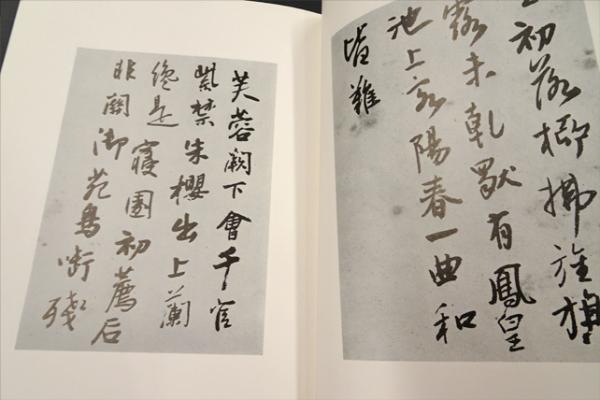 初落柳拂旌旗
露未乾獨有鳳皇
池上客陽春一曲和
皆難
芙蓉闕下會千官
紫禁朱櫻出上蘭
纔是寢園初薦后
非關御苑鳥啣殘